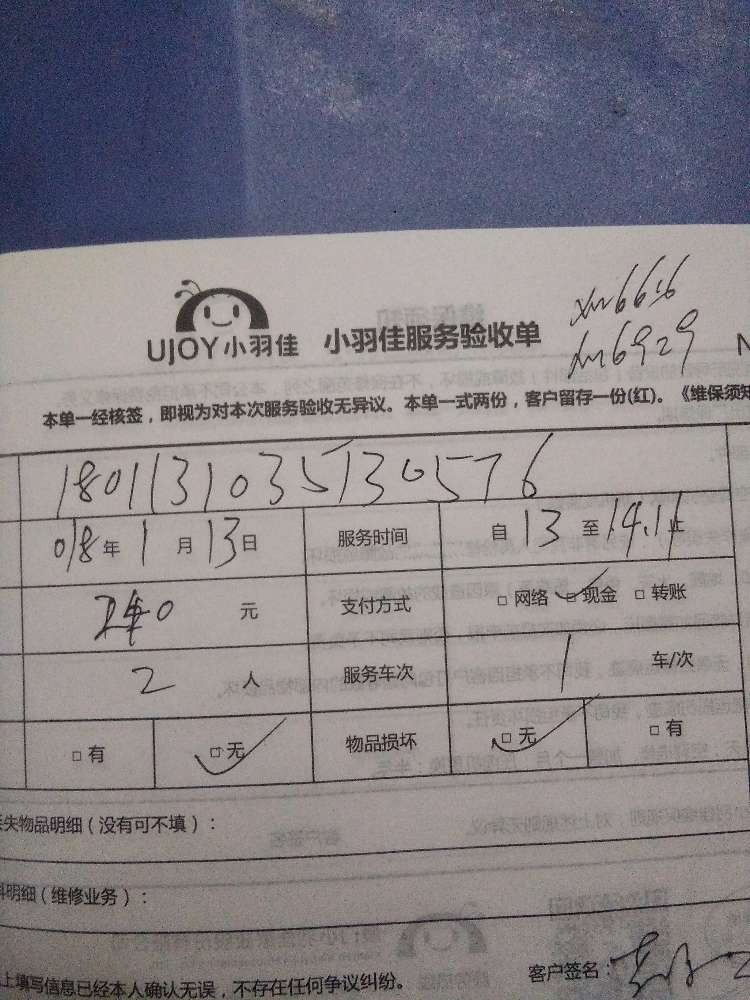 xw6616
UJOY小羽佳 小羽佳服务验收单
xm6929
本单一经核签，即视为对本次服务验收无异议。本单一式两份，客户留存一份(红)。《维保须知
1801131035130576
018年1月13日 服务时间 自13至14.11止
元 支付方式 □网络 □现金 □转账
2人 服务车次 1车/次
□有 □无 物品损坏 □无 □有
失物品明细（没有可不填）：
料明细（维修业务）：
上填写信息已经本人确认无误，不存在任何争议纠纷。 客户签名：